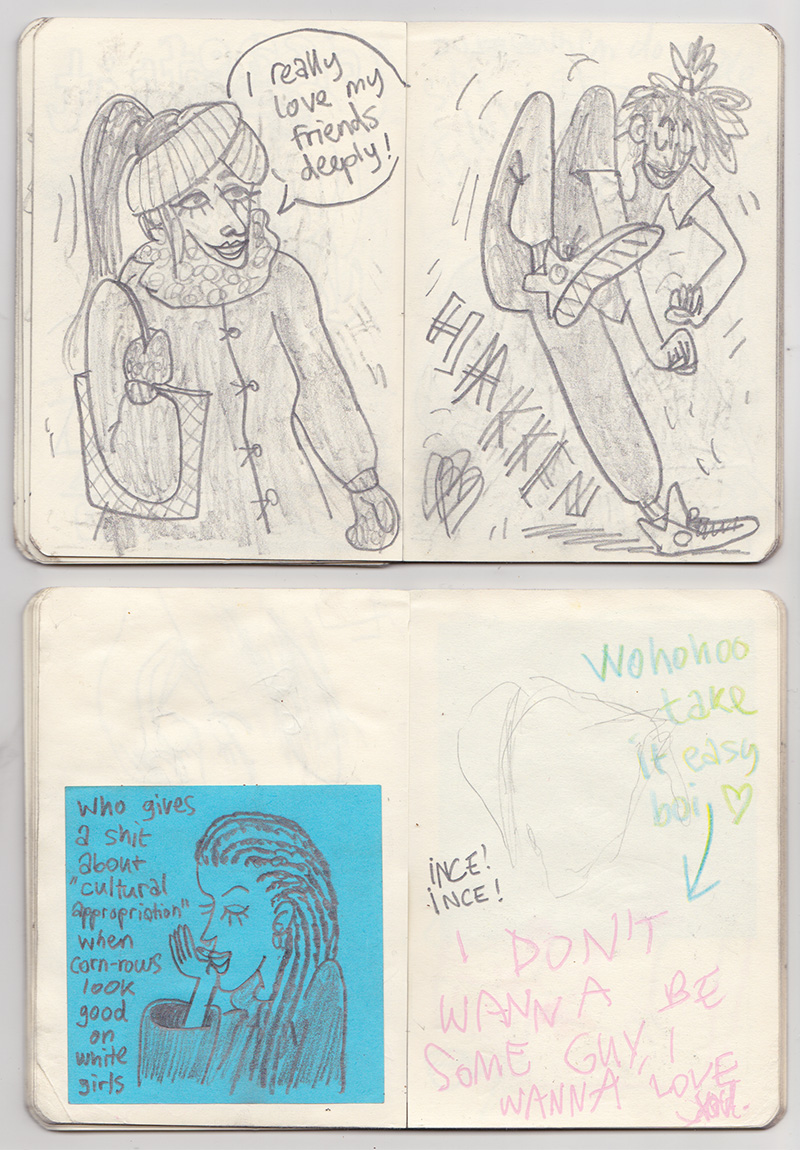 I really
love my
friends
deeply!
HAKKEN
who gives
a shit
about
"cultural
appropriation"
when
corn-rows
look
good
on
white
girls
Wohohoo
take
it easy
boi ♡
iNCE!
iNCE!
I DON'T
WANNA BE
SOME GUY, I
WANNA LOVE